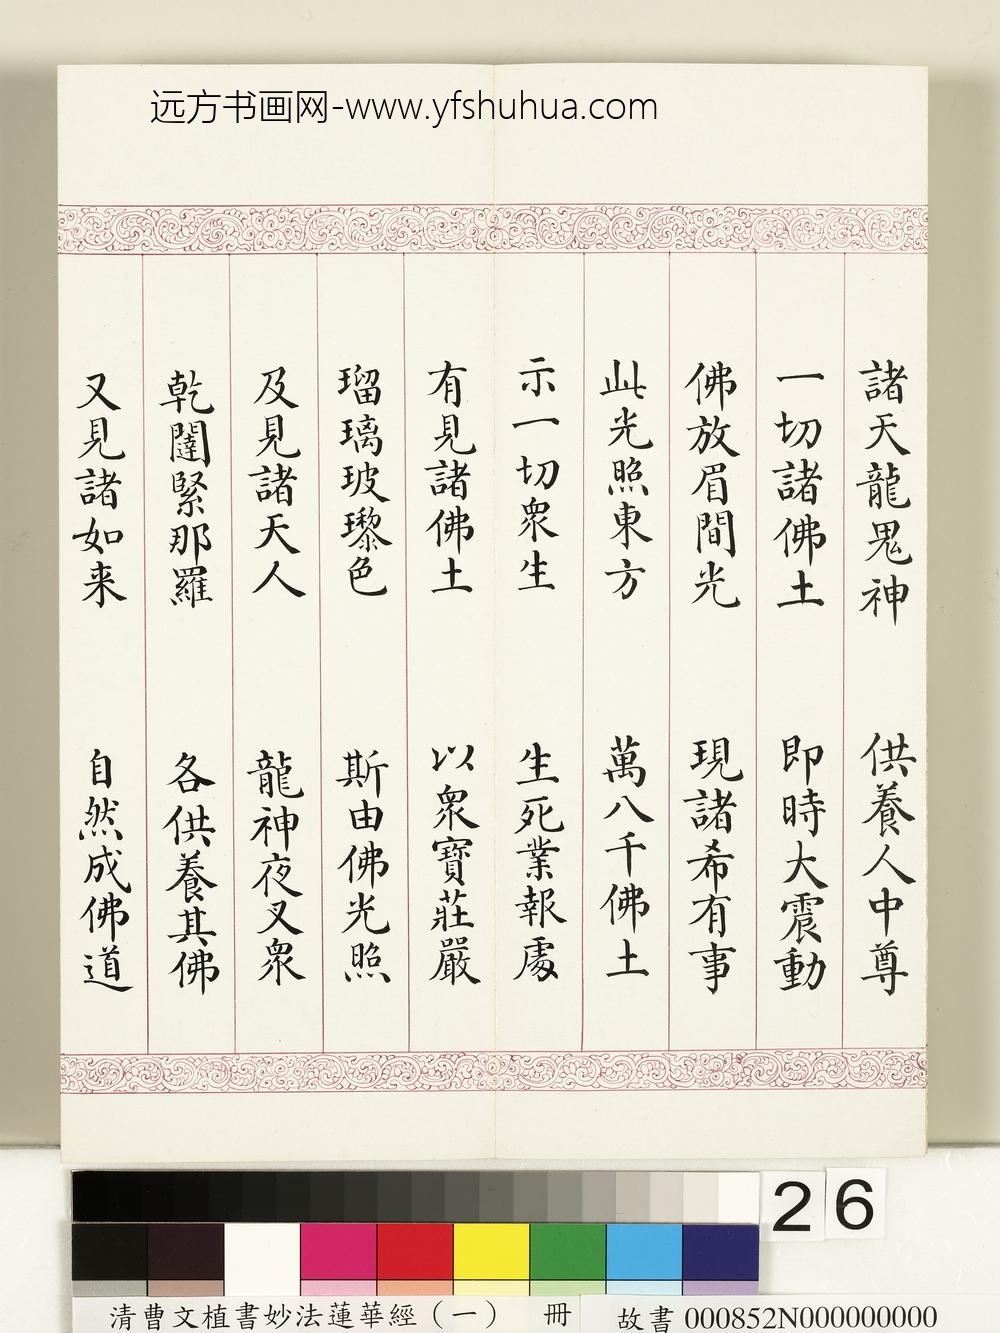 远方书画网-www.yfshuhua.com
諸天龍鬼神　供養人中尊
一切諸佛土　即時大震動
佛放眉間光　現諸希有事
此光照東方　萬八千佛土
示一切衆生　生死業報處
有見諸佛土　以衆寶莊嚴
瑠璃玻瓈色　斯由佛光照
及見諸天人　龍神夜叉衆
乾闥緊那羅　各供養其佛
又見諸如来　自然成佛道
26
清曹文植書妙法蓮華經（一）　冊　故書000852N000000000